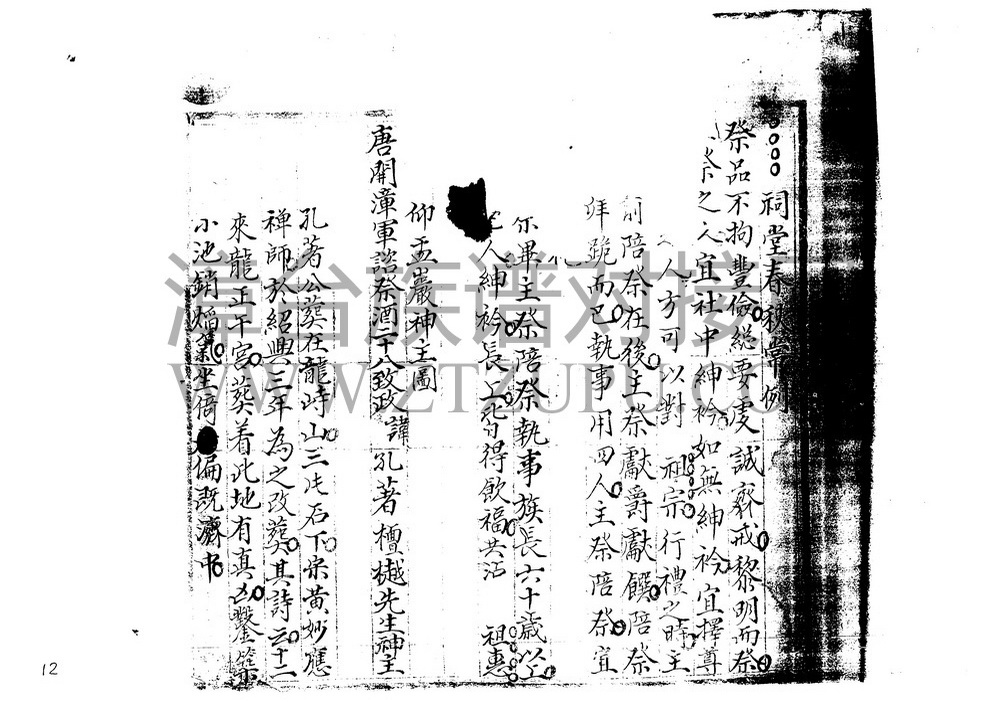 祠堂春秋常例
祭品不拘豐儉総要虔誠齋戒黎明而祭
祭之人宜社中紳衿如無紳衿宜擇尊
人方可以對祖宗行禮之時主
前陪祭在後主祭獻爵獻饌陪祭
拜跪而已執事用四人主祭陪祭宜
祭畢主祭陪祭執事族長六十歲以上
人紳衿長上此勻得飲福共沾祖惠
仰盂巖神主圖
唐開漳軍諮祭酒二十八致政諱孔著檀樾先生神主
孔著公葬在龍峙山三片石下宋黄妙應
禅師於紹興三年為之改葬其詩云十二
來龍正干宮葬着此地有真凶鑿築
小池銷熖氣坐倚偏既濟中
漳台族谱对接网
WWW.ZTZUPU.COM
12